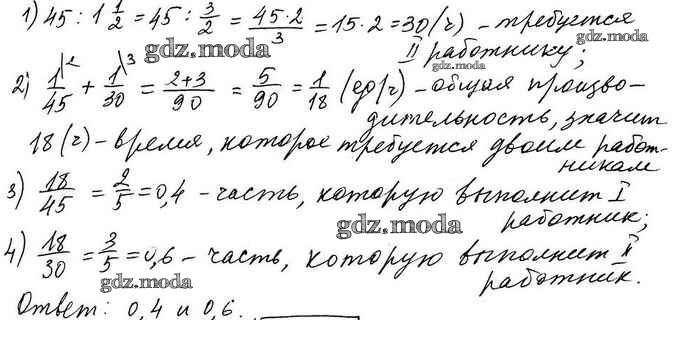 1) 45 : 1 1/2 = 45 : 3/2 = 45·2/3 = 15·2 = 30 (ч) – требуется
gdz.moda
II работнику;
gdz.moda
2) 1/45 \2 + 1/30 \3 = 2+3/90 = 5/90 = 1/18 (ед/ч) – общая произво-
дительность, значит
18 (ч) – время, которое требуется двоим работ-
никам
3) 18/45 = 2/5 = 0,4 – часть, которую выполнит I
gdz.moda
работник;
4) 18/30 = 3/5 = 0,6 – часть, которую выполнит II
gdz.moda
работник.
Ответ: 0,4 и 0,6.